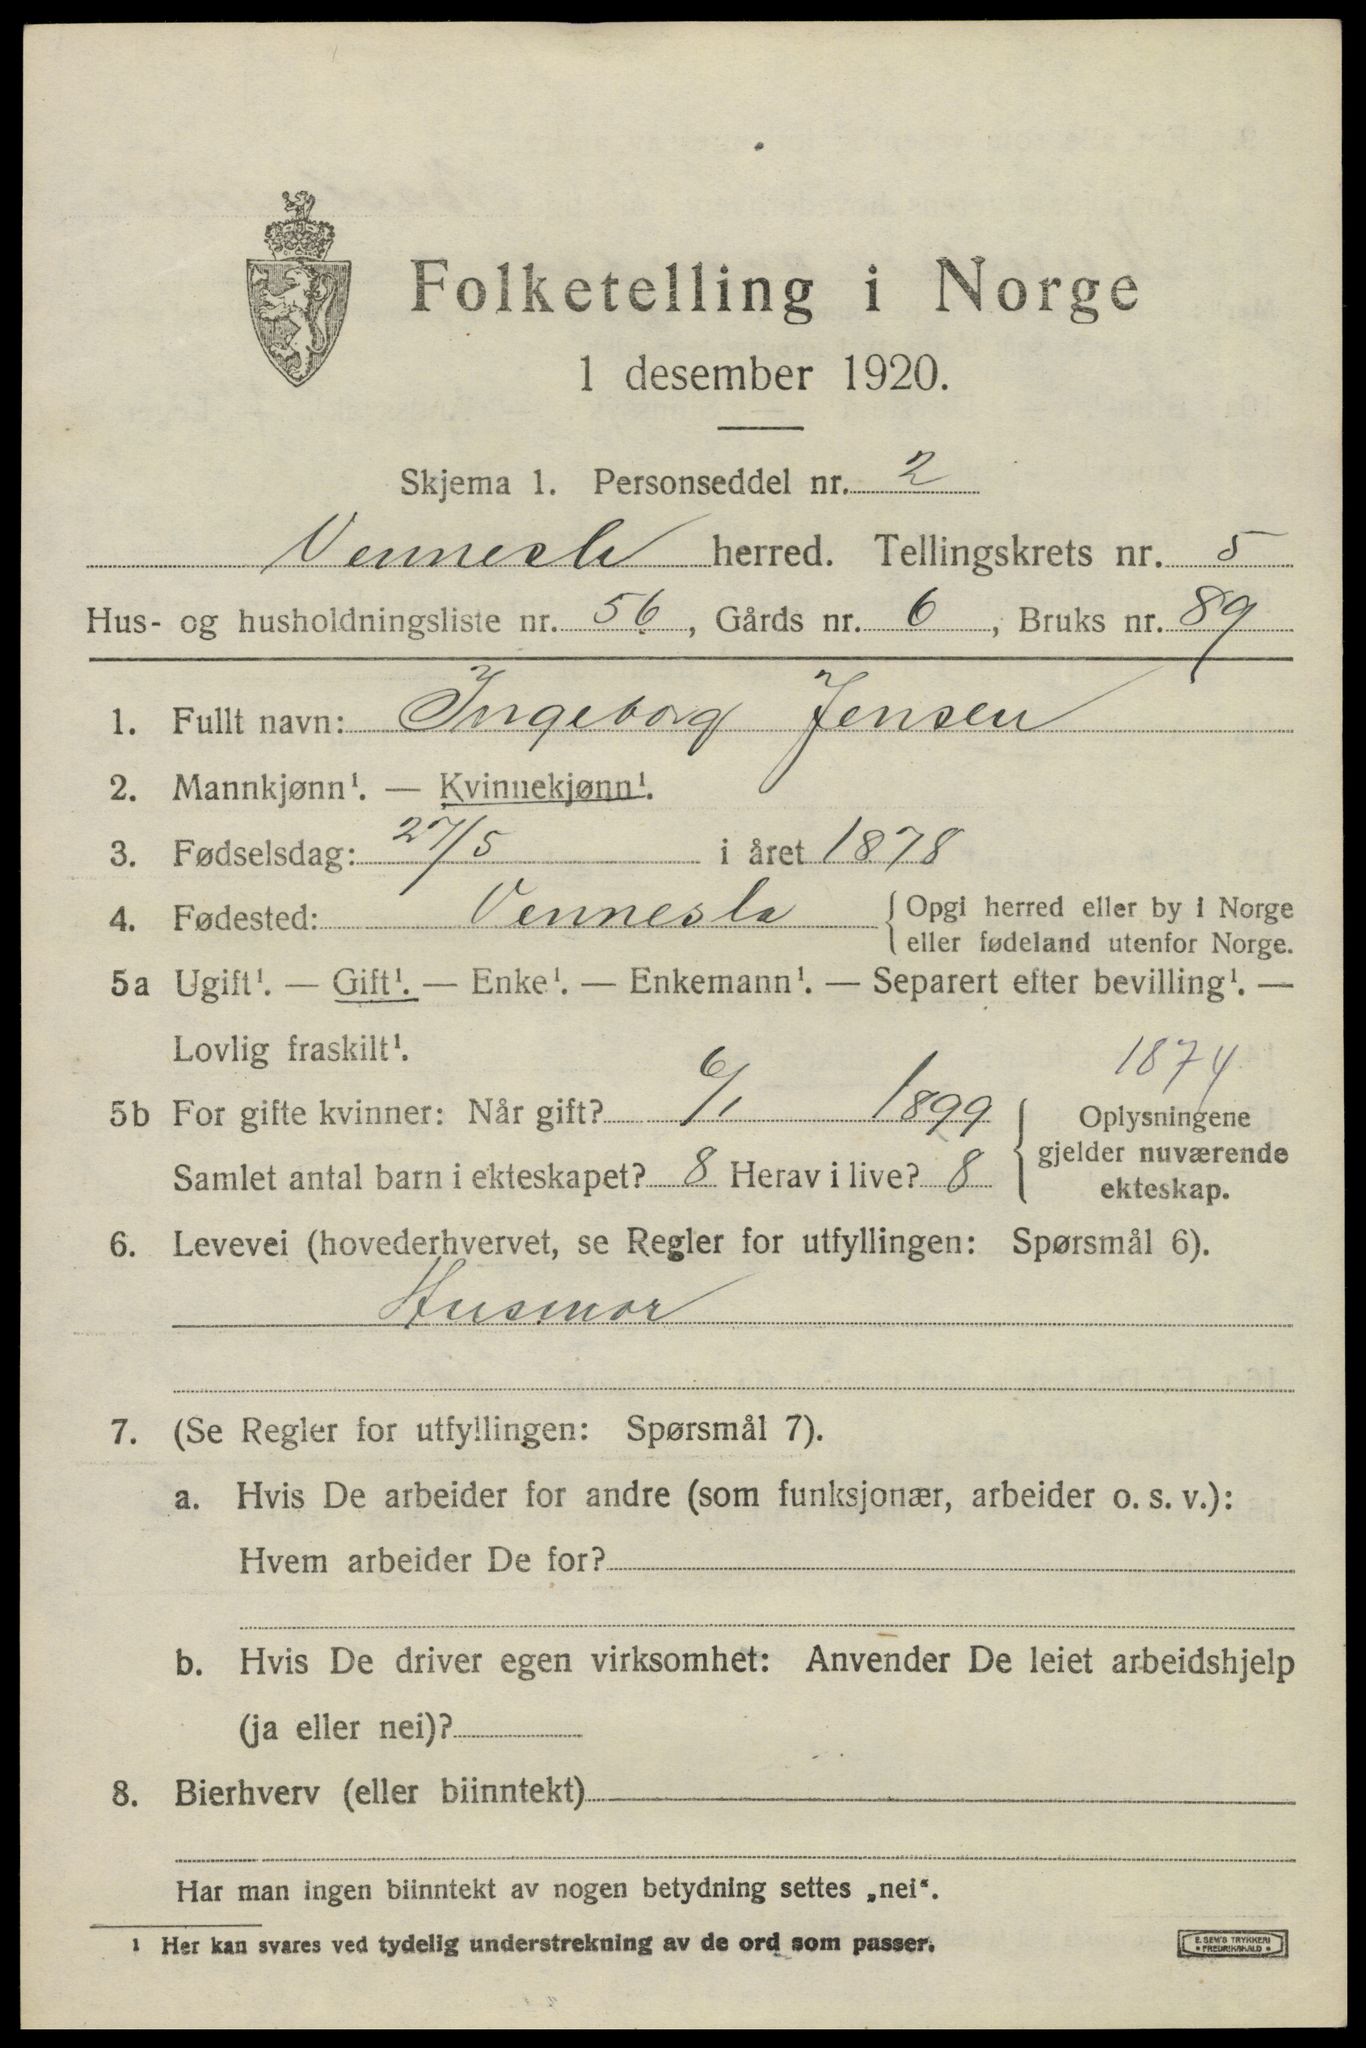 Folketelling i Norge
1 desember 1920.
Skjema 1. Personseddel nr. 2
Vennesla herred. Tellingskrets nr. 5
Hus- og husholdningsliste nr. 56, Gårds nr. 6, Bruks nr. 89
1. Fullt navn: Ingeborg Jensen
2. Mannkjønn¹. — Kvinnekjønn¹.
3. Fødselsdag: 27/5 i året 1878
4. Fødested: Vennesla {Opgi herred eller by i Norge
eller fødeland utenfor Norge.
5a Ugift¹. — Gift¹. — Enke¹. — Enkemann¹. — Separert efter bevilling¹. —
Lovlig fraskilt¹.
1874
5b For gifte kvinner: Når gift? 6/1 1899 { Oplysningene
gjelder nuværende
Samlet antal barn i ekteskapet? 8 Herav i live? 8
ekteskap.
6. Levevei (hovederhvervet, se Regler for utfyllingen: Spørsmål 6).
Husmor
7. (Se Regler for utfyllingen: Spørsmål 7).
a. Hvis De arbeider for andre (som funksjonær, arbeider o. s. v.):
Hvem arbeider De for?
b. Hvis De driver egen virksomhet: Anvender De leiet arbeidshjelp
(ja eller nei)?
8. Bierhverv (eller biinntekt)
Har man ingen biinntekt av nogen betydning settes „nei“.
¹ Her kan svares ved tydelig understrekning av de ord som passer.
E. SEM'S TRYKKERI
• FREDRIKSHALD •